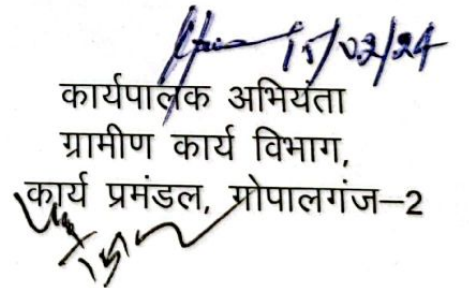 15/02/24
कार्यपालक अभियंता
ग्रामीण कार्य विभाग,
कार्य प्रमंडल, गोपालगंज–2